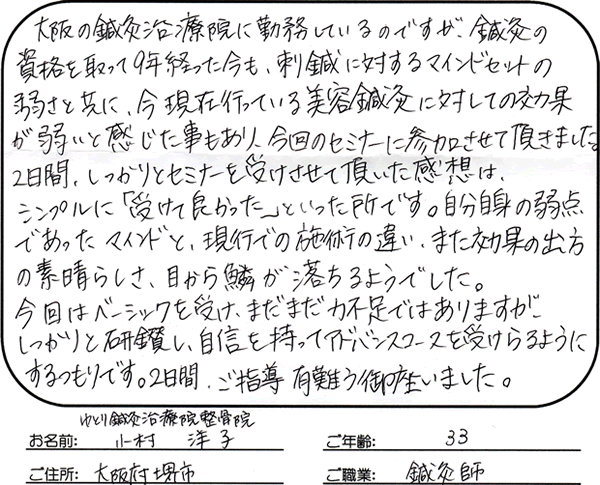 大阪の鍼灸治療院に勤務しているのですが、鍼灸の
資格を取って9年経った今も、刺鍼に対するマインドセットの
弱さと共に、今現在行っている美容鍼灸に対しての効果
が弱いと感じた事もあり、今回のセミナーに参加させて頂きました。
2日間、しっかりとセミナーを受けさせて頂いた感想は、
シンプルに「受けて良かった」といった所です。自分自身の弱点
であったマインドと、現行での施術の違い、また効果の出方
の素晴らしさ、目から鱗が落ちるようでした。
今回はベーシックを受け、まだまだ力不足ではありますが、
しっかりと研鑽し、自信を持ってアドバンスコースを受けらるように
するつもりです。2日間、ご指導有難う御座いました。
ゆとり鍼灸治療院整骨院
お名前: 小村 洋子 ご年齢: 33
ご住所: 大阪府堺市 ご職業: 鍼灸師